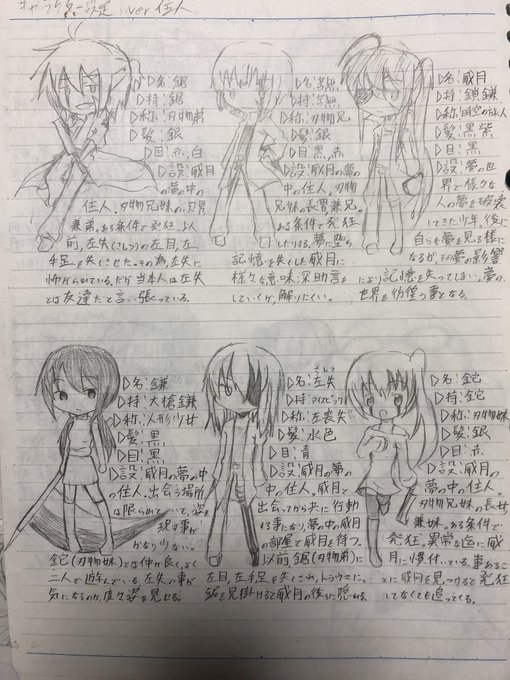 キャラクター設定 ver 住人
▷名:鋸
▷持:鋸
▷称:刃物弟
▷髪:銀
▷目:赤,白
▷設:威月の
夢の中の
住人。刃物兄妹の次男
兼弟。ある条件で発狂。以
前、左失(さしつ)の左目,左
手足を失くさせた。その為左失に
怖がられている。だが当本人は左失
とは友達だと言い張っている。
▷髪:銀
▷目:黒,赤
▷設:威月の夢
の中の住人。刃物
兄妹の長男兼兄。
ある条件で発狂
したりする。夢に堕ち
記憶を失くした威月に
様々な意味深助言を
していくが、解りにくい。
▷名:威月
▷持:鎖鎌
▷称:時空の旅人
▷髪:黒紫
▷目:黒
▷設:夢の世
界で様々な
人の夢を破壊
してきた少年。後に
自らも夢を見る様に
なるが、その夢の影響
により記憶を失ってしまい、夢の
世界を彷徨う事となる。
▷名:鎌
▷持:大槍鎌
▷称:人形少女
▷髪:黒
▷目:黒
▷設:威月の夢の中
の住人。出会う場所
は限られていて、姿を
現す事が
かなり少ない。
鉈(刃物妹)とは仲が良く、よく
二人で遊んでいる。左失の事が
気になるのか、度々姿を見せる。
さしつ
▷名:左失
▷持:アイスピック
▷称:左喪失
▷髪:水色
▷目:青
▷設:威月の夢の
中の住人。威月と
出会ってから共に行動
する事になり、夢の中の威月
の部屋で威月を待つ。
以前、鋸(刃物弟)に
左目,左手足を失くされ、トラウマに。
鋸を見掛けると威月の後ろに隠れる。
▷名:鉈
▷持:鉈
▷称:刃物妹
▷髪:銀
▷目:赤
▷設:威月の
夢の中の住人。
刃物兄妹の長女
兼妹。ある条件で
発狂。異常な迄に威
月に懐付いている。事ある
ごとに威月を見つけると発狂
しなくても追ってくる。